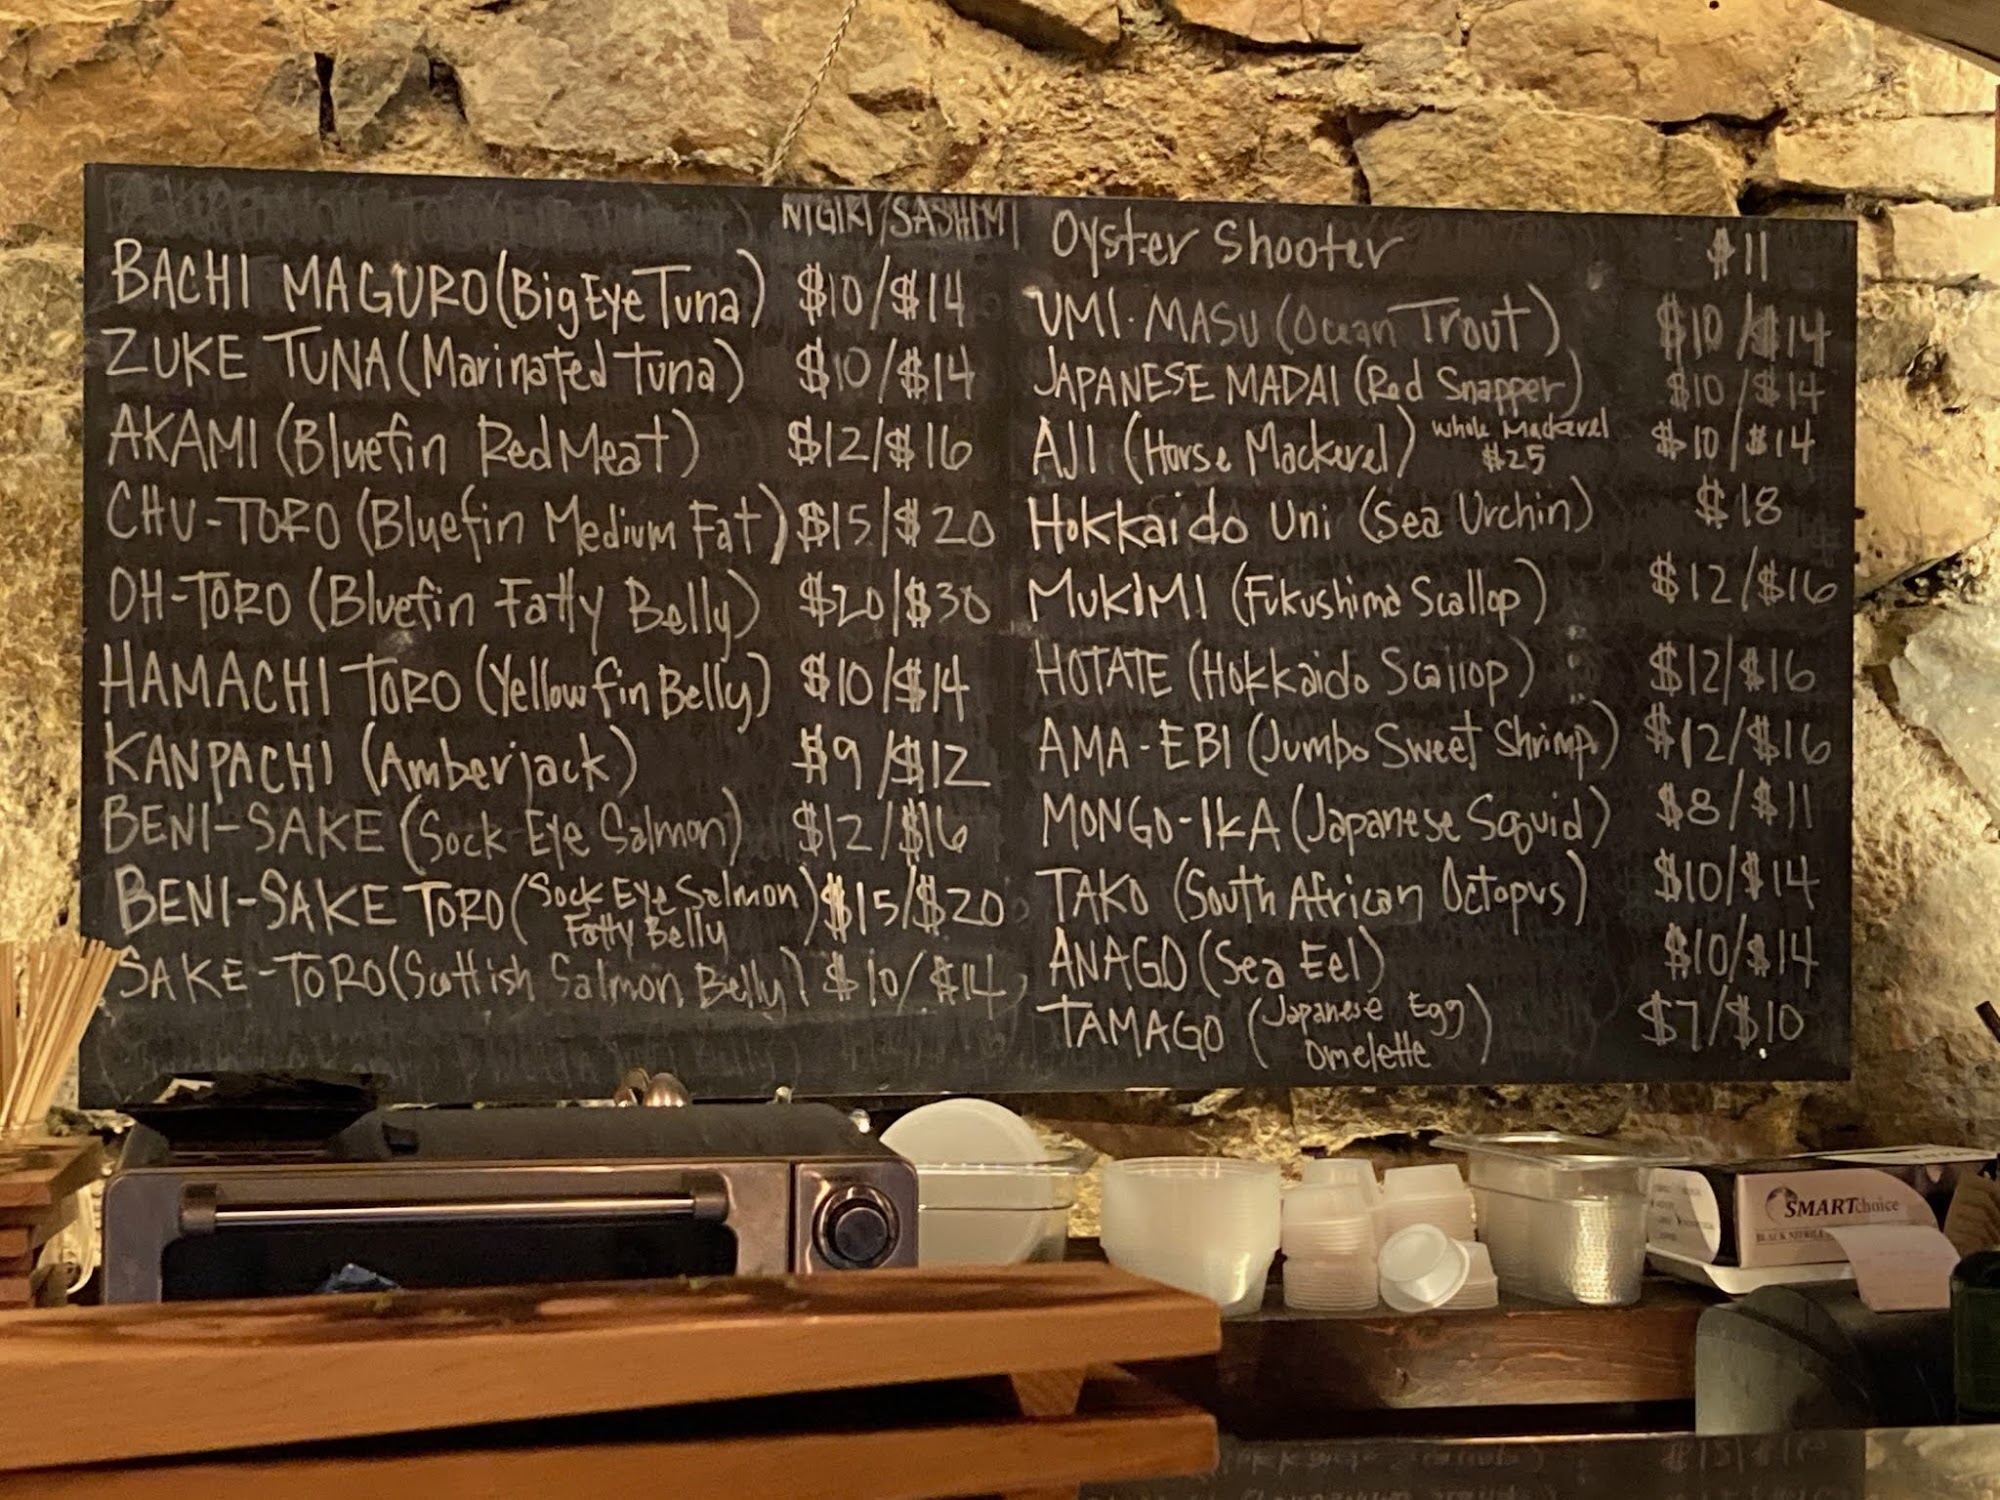 NIGIRI/SASHIMI
BACHI MAGURO (Big Eye Tuna) $10/$14
ZUKE TUNA (Marinated Tuna) $10/$14
AKAMI (Bluefin Red Meat) $12/$16
CHU-TORO (Bluefin Medium Fat) $15/$20
OH-TORO (Bluefin Fatty Belly) $20/$30
HAMACHI TORO (Yellowfin Belly) $10/$14
KANPACHI (Amberjack) $9/$12
BENI-SAKE (Sock Eye Salmon) $12/$16
BENI-SAKE TORO (Sock Eye Salmon Fatty Belly) $15/$20
SAKE-TORO (Scottish Salmon Belly) $10/$14
Oyster Shooter $11
UMI-MASU (Ocean Trout) $10/$14
JAPANESE MADAI (Red Snapper) $10/$14
AJI (Horse Mackerel) Whole Mackerel $25 $10/$14
Hokkaido Uni (Sea Urchin) $18
MUKIMI (Fukushima Scallop) $12/$16
HOTATE (Hokkaido Scallop) $12/$16
AMA-EBI (Jumbo Sweet Shrimp) $12/$16
MONGO-IKA (Japanese Squid) $8/$11
TAKO (South African Octopus) $10/$14
ANAGO (Sea Eel) $10/$14
TAMAGO (Japanese Egg Omelette) $7/$10
SMARTchoice
BLACK NITRILE